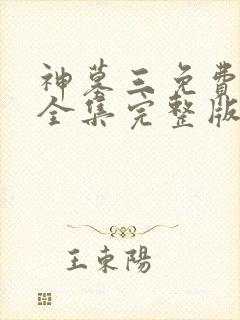 神墓三免費
全集完整版
王東陽